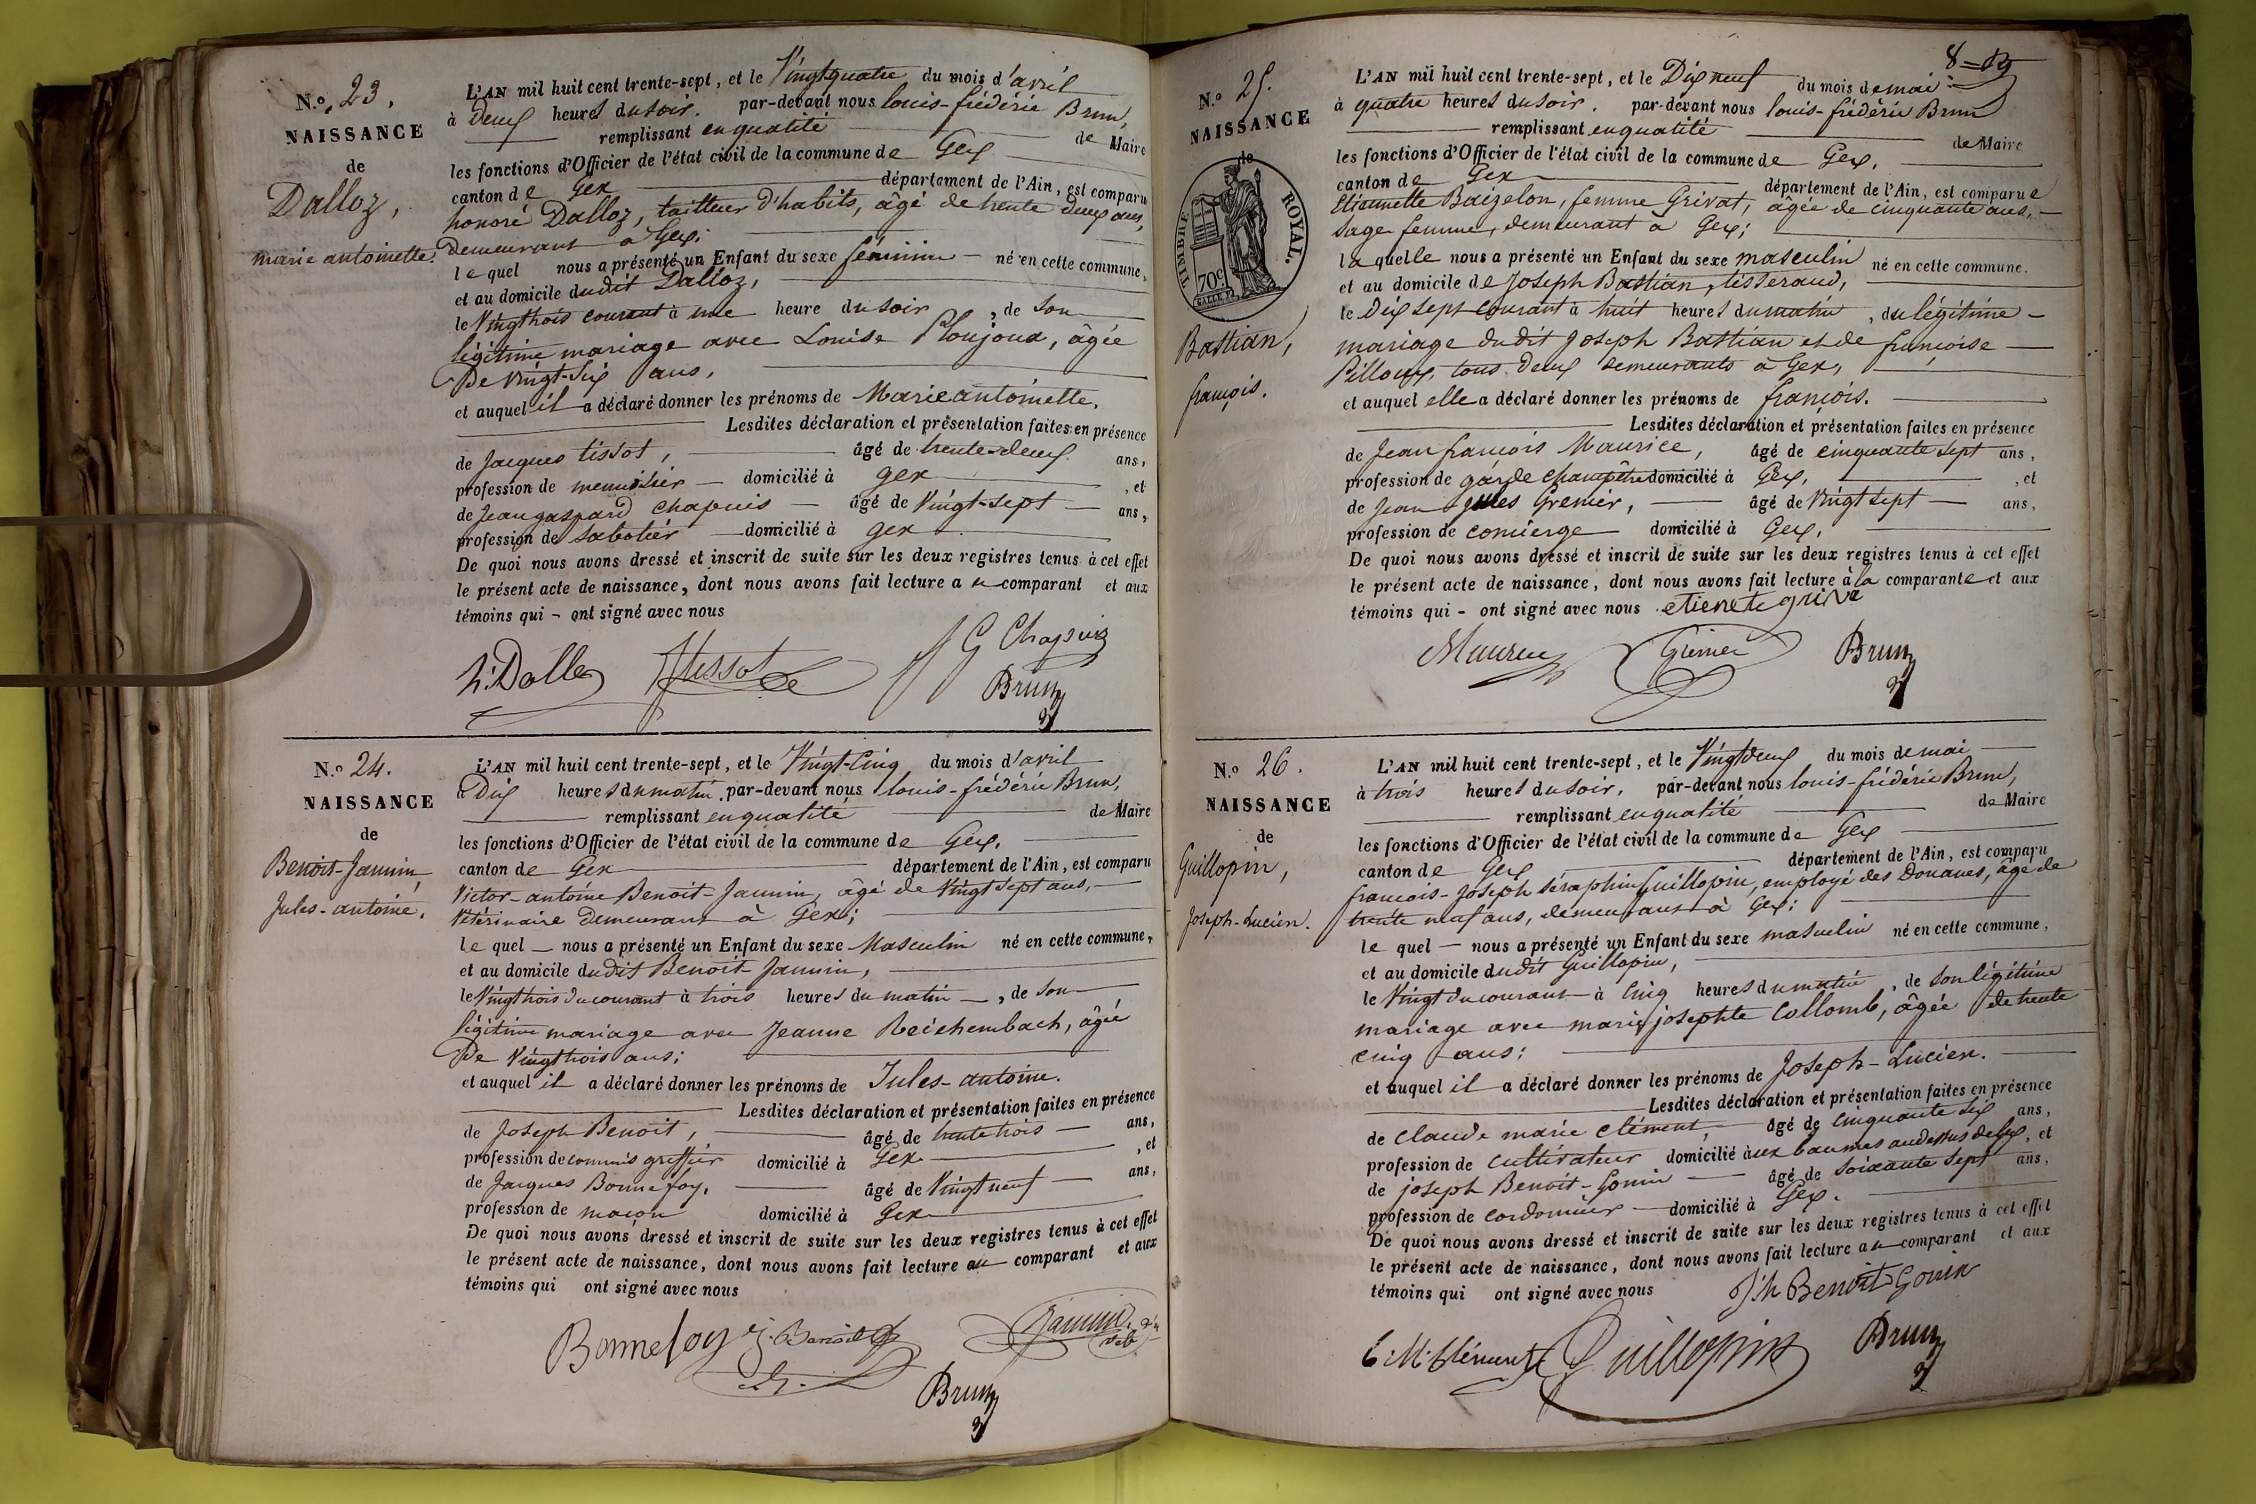 N.º 23.
NAISSANCE
de
Dalloz,
marie antoinette.
L'AN mil huit cent trente-sept, et le Vingtquatre du mois d'avril
à Deux heures du soir. par-devant nous louis-frédéric Brun,
remplissant en qualité de Maire
les fonctions d'Officier de l'état civil de la commune de Gex
canton de Gex département de l'Ain, est comparu
honoré Dalloz, tailleur d'habits, âgé de trente deux ans,
demeurant à Gex;
lequel nous a présenté un Enfant du sexe féminin né en cette commune,
et au domicile dudit Dalloz,
le Vingttrois courant à une heure du soir, de son
légitime mariage avec Louise Ploujoux, âgée
De vingt-six ans,
et auquel il a déclaré donner les prénoms de Marie antoinette.
Lesdites déclaration et présentation faites en présence
de Jacques tissot, âgé de trente-deux ans,
profession de menuisier domicilié à gex, et
de Jean gaspard chapuis âgé de Vingt-sept ans,
profession de sabotier domicilié à gex
De quoi nous avons dressé et inscrit de suite sur les deux registres tenus à cet effet
le présent acte de naissance, dont nous avons fait lecture au comparant et aux
témoins qui - ont signé avec nous
h. Dalloz JTissot J G Chapuis
Brun
N.º 24.
NAISSANCE
de
Benoit-Jannin,
Jules-antoine.
L'AN mil huit cent trente-sept, et le Vingt-Cinq du mois d'avril
à Dix heures du matin, par-devant nous louis-frédéric Brun,
remplissant en qualité de Maire
les fonctions d'Officier de l'état civil de la commune de Gex,
canton de Gex département de l'Ain, est comparu
Victor-antoine Benoit-Jannin, âgé de Vingt sept ans,
Vétérinaire demeurant à Gex;
lequel nous a présenté un Enfant du sexe Masculin né en cette commune,
et au domicile dudit Benoit-Jannin,
le Vingttrois du courant à trois heures du matin, de son
légitime mariage avec Jeanne Reichembach, âgée
De Vingttrois ans;
et auquel il a déclaré donner les prénoms de Jules-antoine.
Lesdites déclaration et présentation faites en présence
de Joseph Benoit, âgé de trente trois ans,
profession de commis greffier domicilié à Gex, et
de Jacques Bonnefoy, âgé de Vingt neuf ans,
profession de maçon domicilié à Gex
De quoi nous avons dressé et inscrit de suite sur les deux registres tenus à cet effet
le présent acte de naissance, dont nous avons fait lecture au comparant et aux
témoins qui ont signé avec nous
Bonnefoy j. Benoit Jannin
Brun
8
N.º 25.
NAISSANCE
de
TIMBRE ROYAL.
70c
Bastian,
françois.
L'AN mil huit cent trente-sept, et le Dix neuf du mois de mai
à quatre heures du soir. par-devant nous louis-frédéric Brun
remplissant en qualité de Maire
les fonctions d'Officier de l'état civil de la commune de Gex,
canton de Gex département de l'Ain, est comparue
Etiennette Baizelon, femme Grivat, âgée de cinquante ans,
sage femme, demeurant à Gex;
laquelle nous a présenté un Enfant du sexe masculin né en cette commune.
et au domicile de Joseph Bastian, tisserand,
le Dix sept courant à huit heures du matin, du légitime
mariage dudit Joseph Bastian et de françoise
Pilloux, tous deux demeurants à Gex,
et auquel elle a déclaré donner les prénoms de françois.
Lesdites déclaration et présentation faites en présence
de Jean françois Maurice, âgé de cinquante sept ans,
profession de garde champêtre domicilié à Gex, et
de Jean Jules Grenier, âgé de Vingt sept ans,
profession de concierge domicilié à Gex,
De quoi nous avons dressé et inscrit de suite sur les deux registres tenus à cet effet
le présent acte de naissance, dont nous avons fait lecture à la comparante et aux
témoins qui - ont signé avec nous
Maurice Grenier Brun
N.º 26.
NAISSANCE
de
Guillopin,
Joseph-Lucien.
L'AN mil huit cent trente-sept, et le Vingtdeux du mois de mai
à trois heures du soir, par-devant nous louis-frédéric Brun,
remplissant en qualité de Maire
les fonctions d'Officier de l'état civil de la commune de Gex
canton de Gex département de l'Ain, est comparu
françois-Joseph séraphin Guillopin, employé des Douanes, âgé de
trente neuf ans, demeurant à Gex;
lequel nous a présenté un Enfant du sexe masculin né en cette commune,
et au domicile dudit Guillopin,
le Vingt du courant à Cinq heures du matin, de son légitime
mariage avec marie josephte Collomb, âgée de trente
cinq ans;
et auquel il a déclaré donner les prénoms de Joseph-Lucien.
Lesdites déclaration et présentation faites en présence
de claude marie clément, âgé de cinquante six ans,
profession de cultivateur domicilié aux baumes au dessus de Gex, et
de joseph Benoit-Gonin âgé de soixante sept ans,
profession de cordonnier domicilié à Gex.
De quoi nous avons dressé et inscrit de suite sur les deux registres tenus à cet effet
le présent acte de naissance, dont nous avons fait lecture au comparant et aux
témoins qui ont signé avec nous Jh Benoit Gonin
C. M. Clément Guillopin Brun